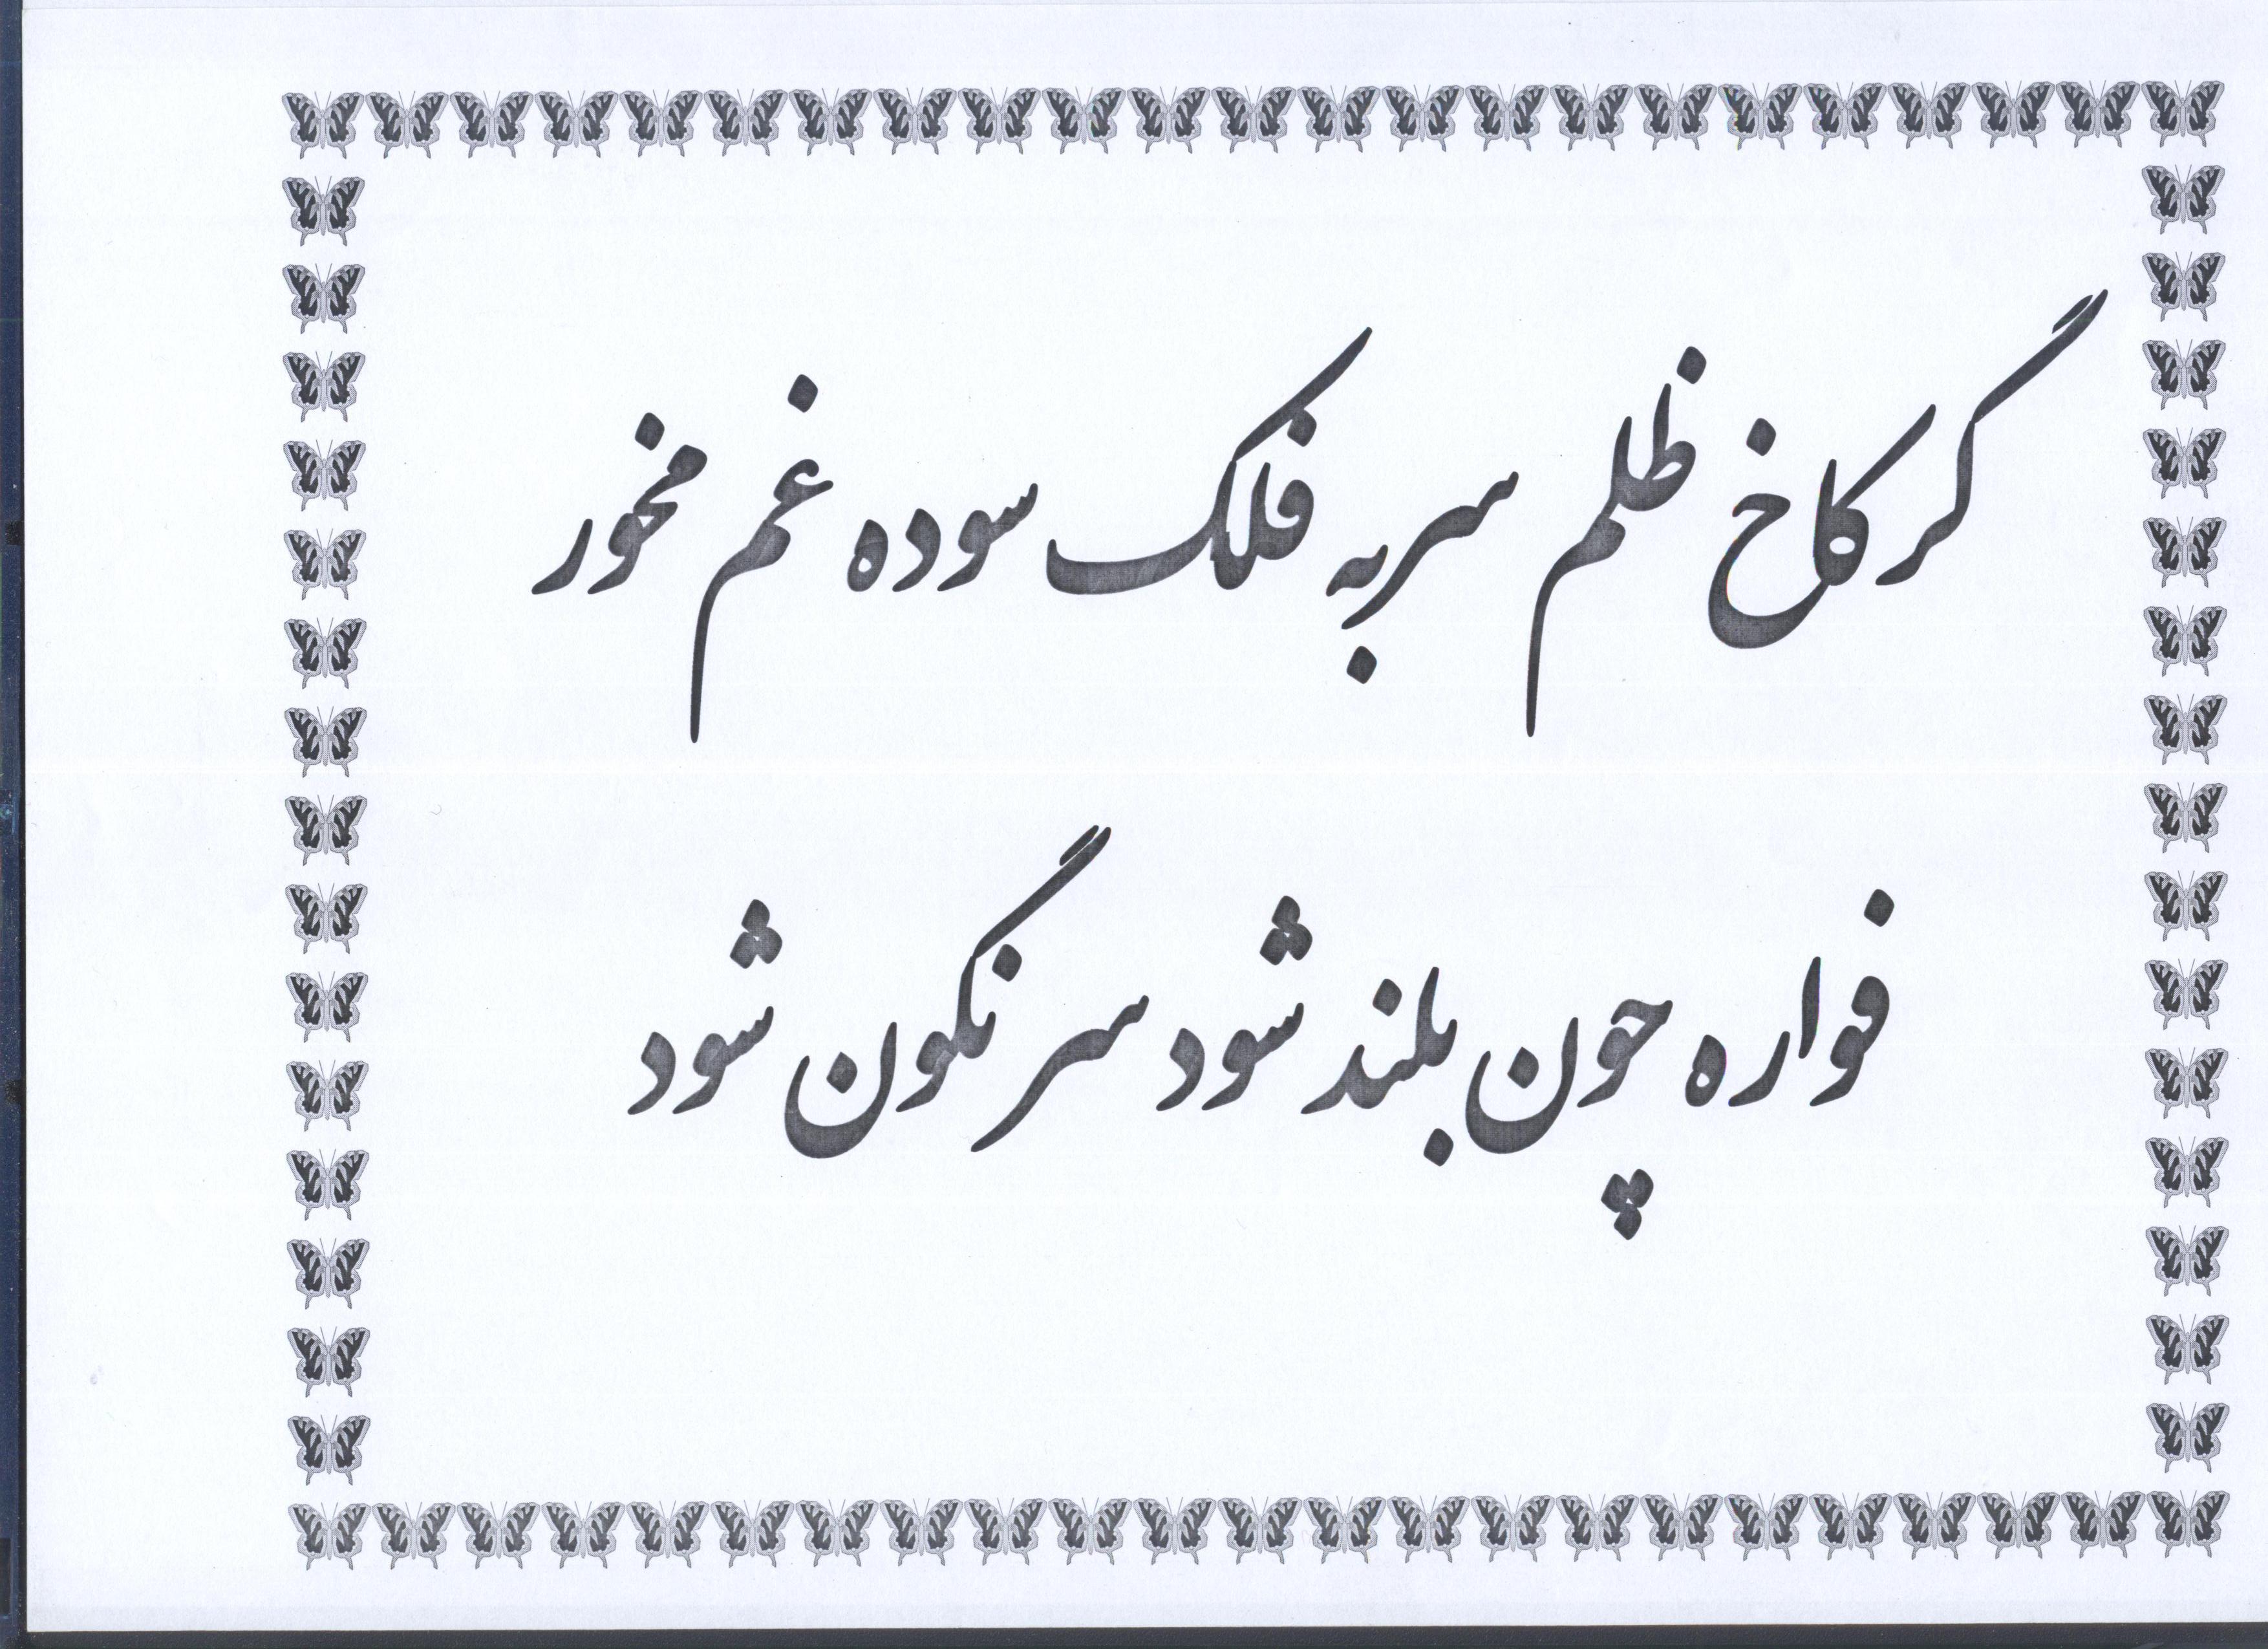 گر کاخ ظلم سر به فلک سوده غم مخور
فواره چون بلند شود سر نگون شود